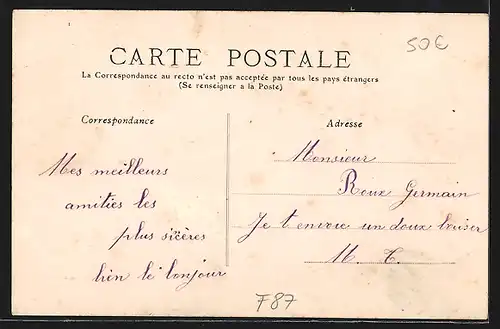 50€
CARTE POSTALE
La Correspondance au recto n'est pas acceptée par tous les pays étrangers
(Se renseigner a la Poste)
Correspondance
Adresse
Mes meilleurs
amities les
plus sicères
bien le bonjour
Monsieur
Roux Germain
Je t envoie un doux baiser
M. T.
F87